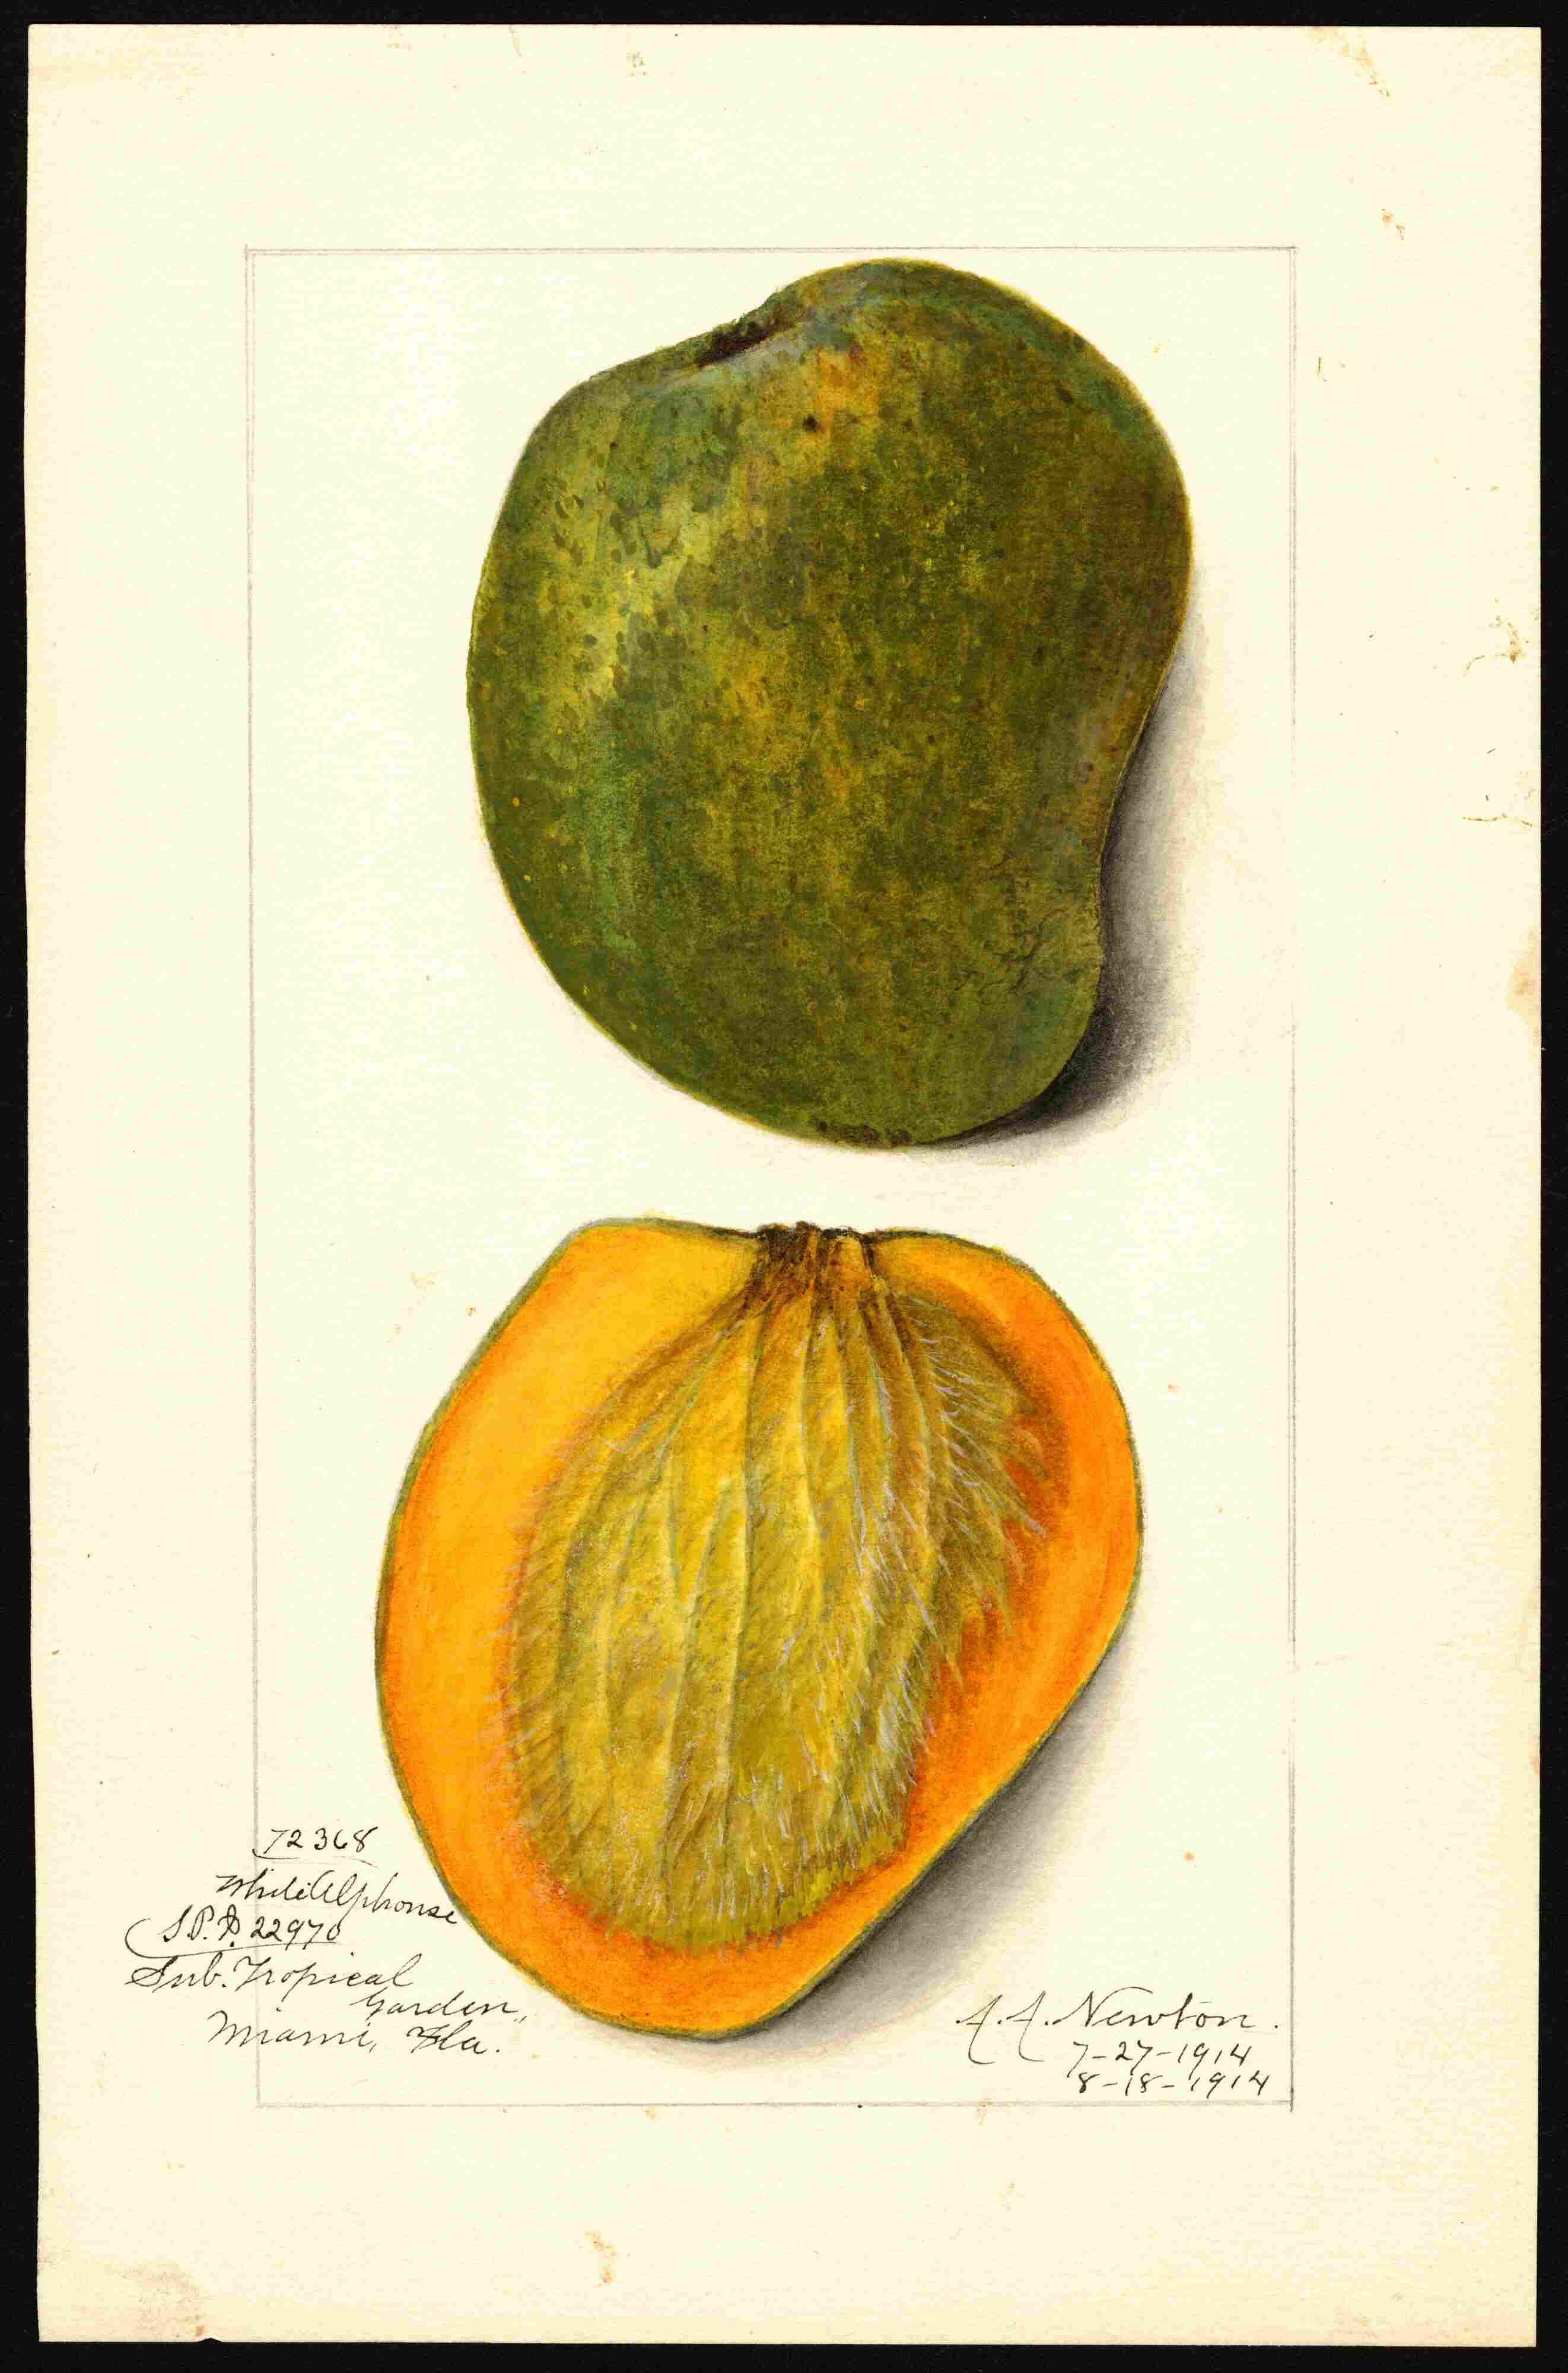 72368
White Alphonse
S.P.I. 22970
Sub. Tropical
Garden,
Miami, Fla.
A.A. Newton.
7-27-1914
8-18-1914